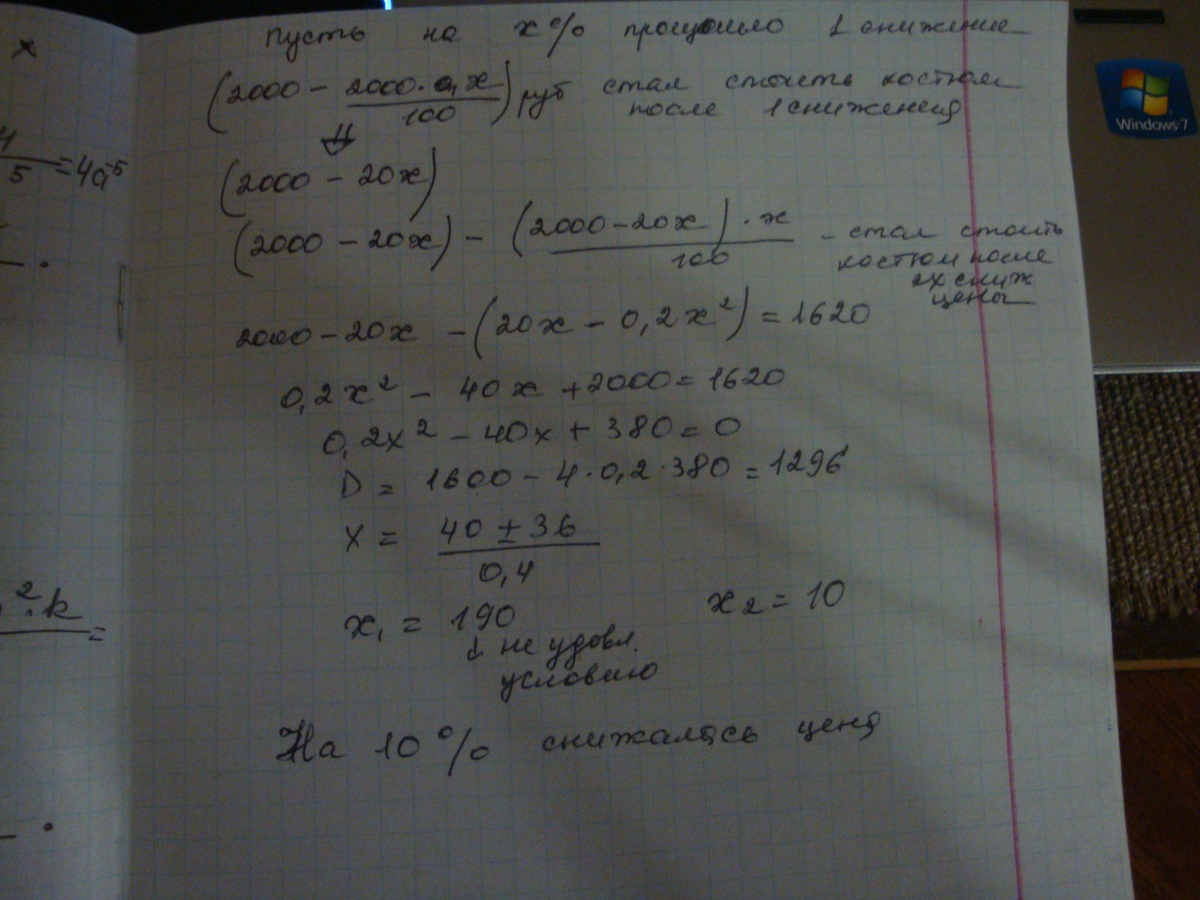 Пусть на x% произошло 1 снижение
(2000 - 2000·x/100) руб стал стоить костюм
после 1 снижения
⇓
(2000 - 20x)
(2000 - 20x) - (2000-20x)·x/100 - стал стоить
костюм после
2х сниж
цены
2000 - 20x - (20x - 0,2x²) = 1620
0,2x² - 40x + 2000 = 1620
0,2x² - 40x + 380 = 0
D = 1600 - 4·0,2·380 = 1296
x = 40 ± 36 / 0,4
x₁ = 190 x₂ = 10
не удовл.
условию
На 10% снижалась цена
4/5 = 4a⁻⁵
²·k =
Windows 7